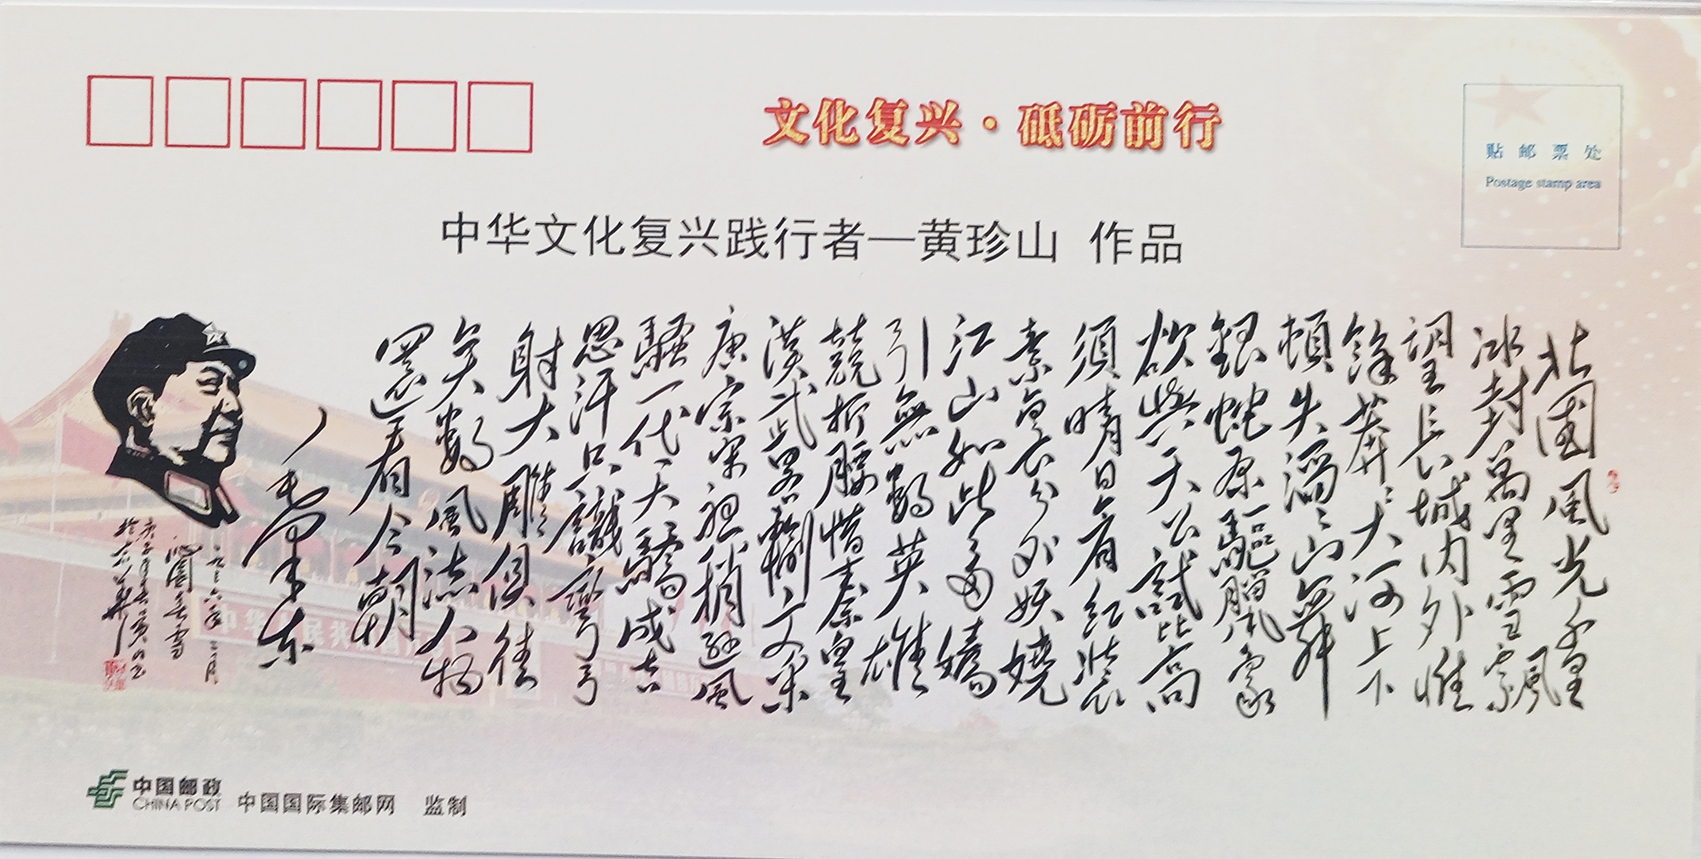 文化复兴·砥砺前行
贴邮票处
Postage stamp area
中华文化复兴践行者—黄珍山 作品
北國風光千里
冰封萬里雪飄
望長城内外惟
餘莽〻大河上下
頓失滔〻山舞
銀蛇原驅臘象
欲與天公試比高
須晴日看紅裝
素裹分外妖嬈
江山如此多嬌
引無數英雄
競折腰惜秦皇
漢武略輸文采
唐宗宋祖稍遜風
騷一代天驕成吉
思汗只識彎弓
射大雕俱往
矣數風流人物
還看今朝
毛澤東
中国邮政
CHINA POST
中国国际集邮网 监制